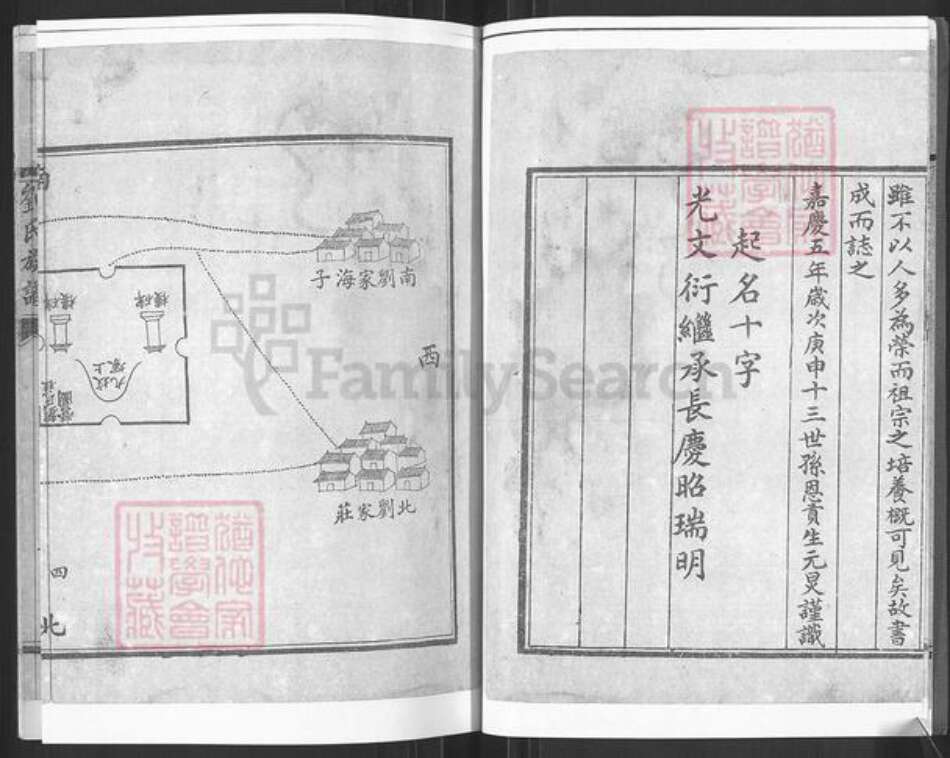 雖不以人多為榮而祖宗之培養概可見矣故書
成而誌之
嘉慶五年歲次庚申十三世孫恩貢生元炅謹識
起名十字
光文衍繼承長慶昭瑞明
南劉家海子
西
北劉家莊
碑樓
碑樓
劉氏族譜
南
四
北
FamilySearch